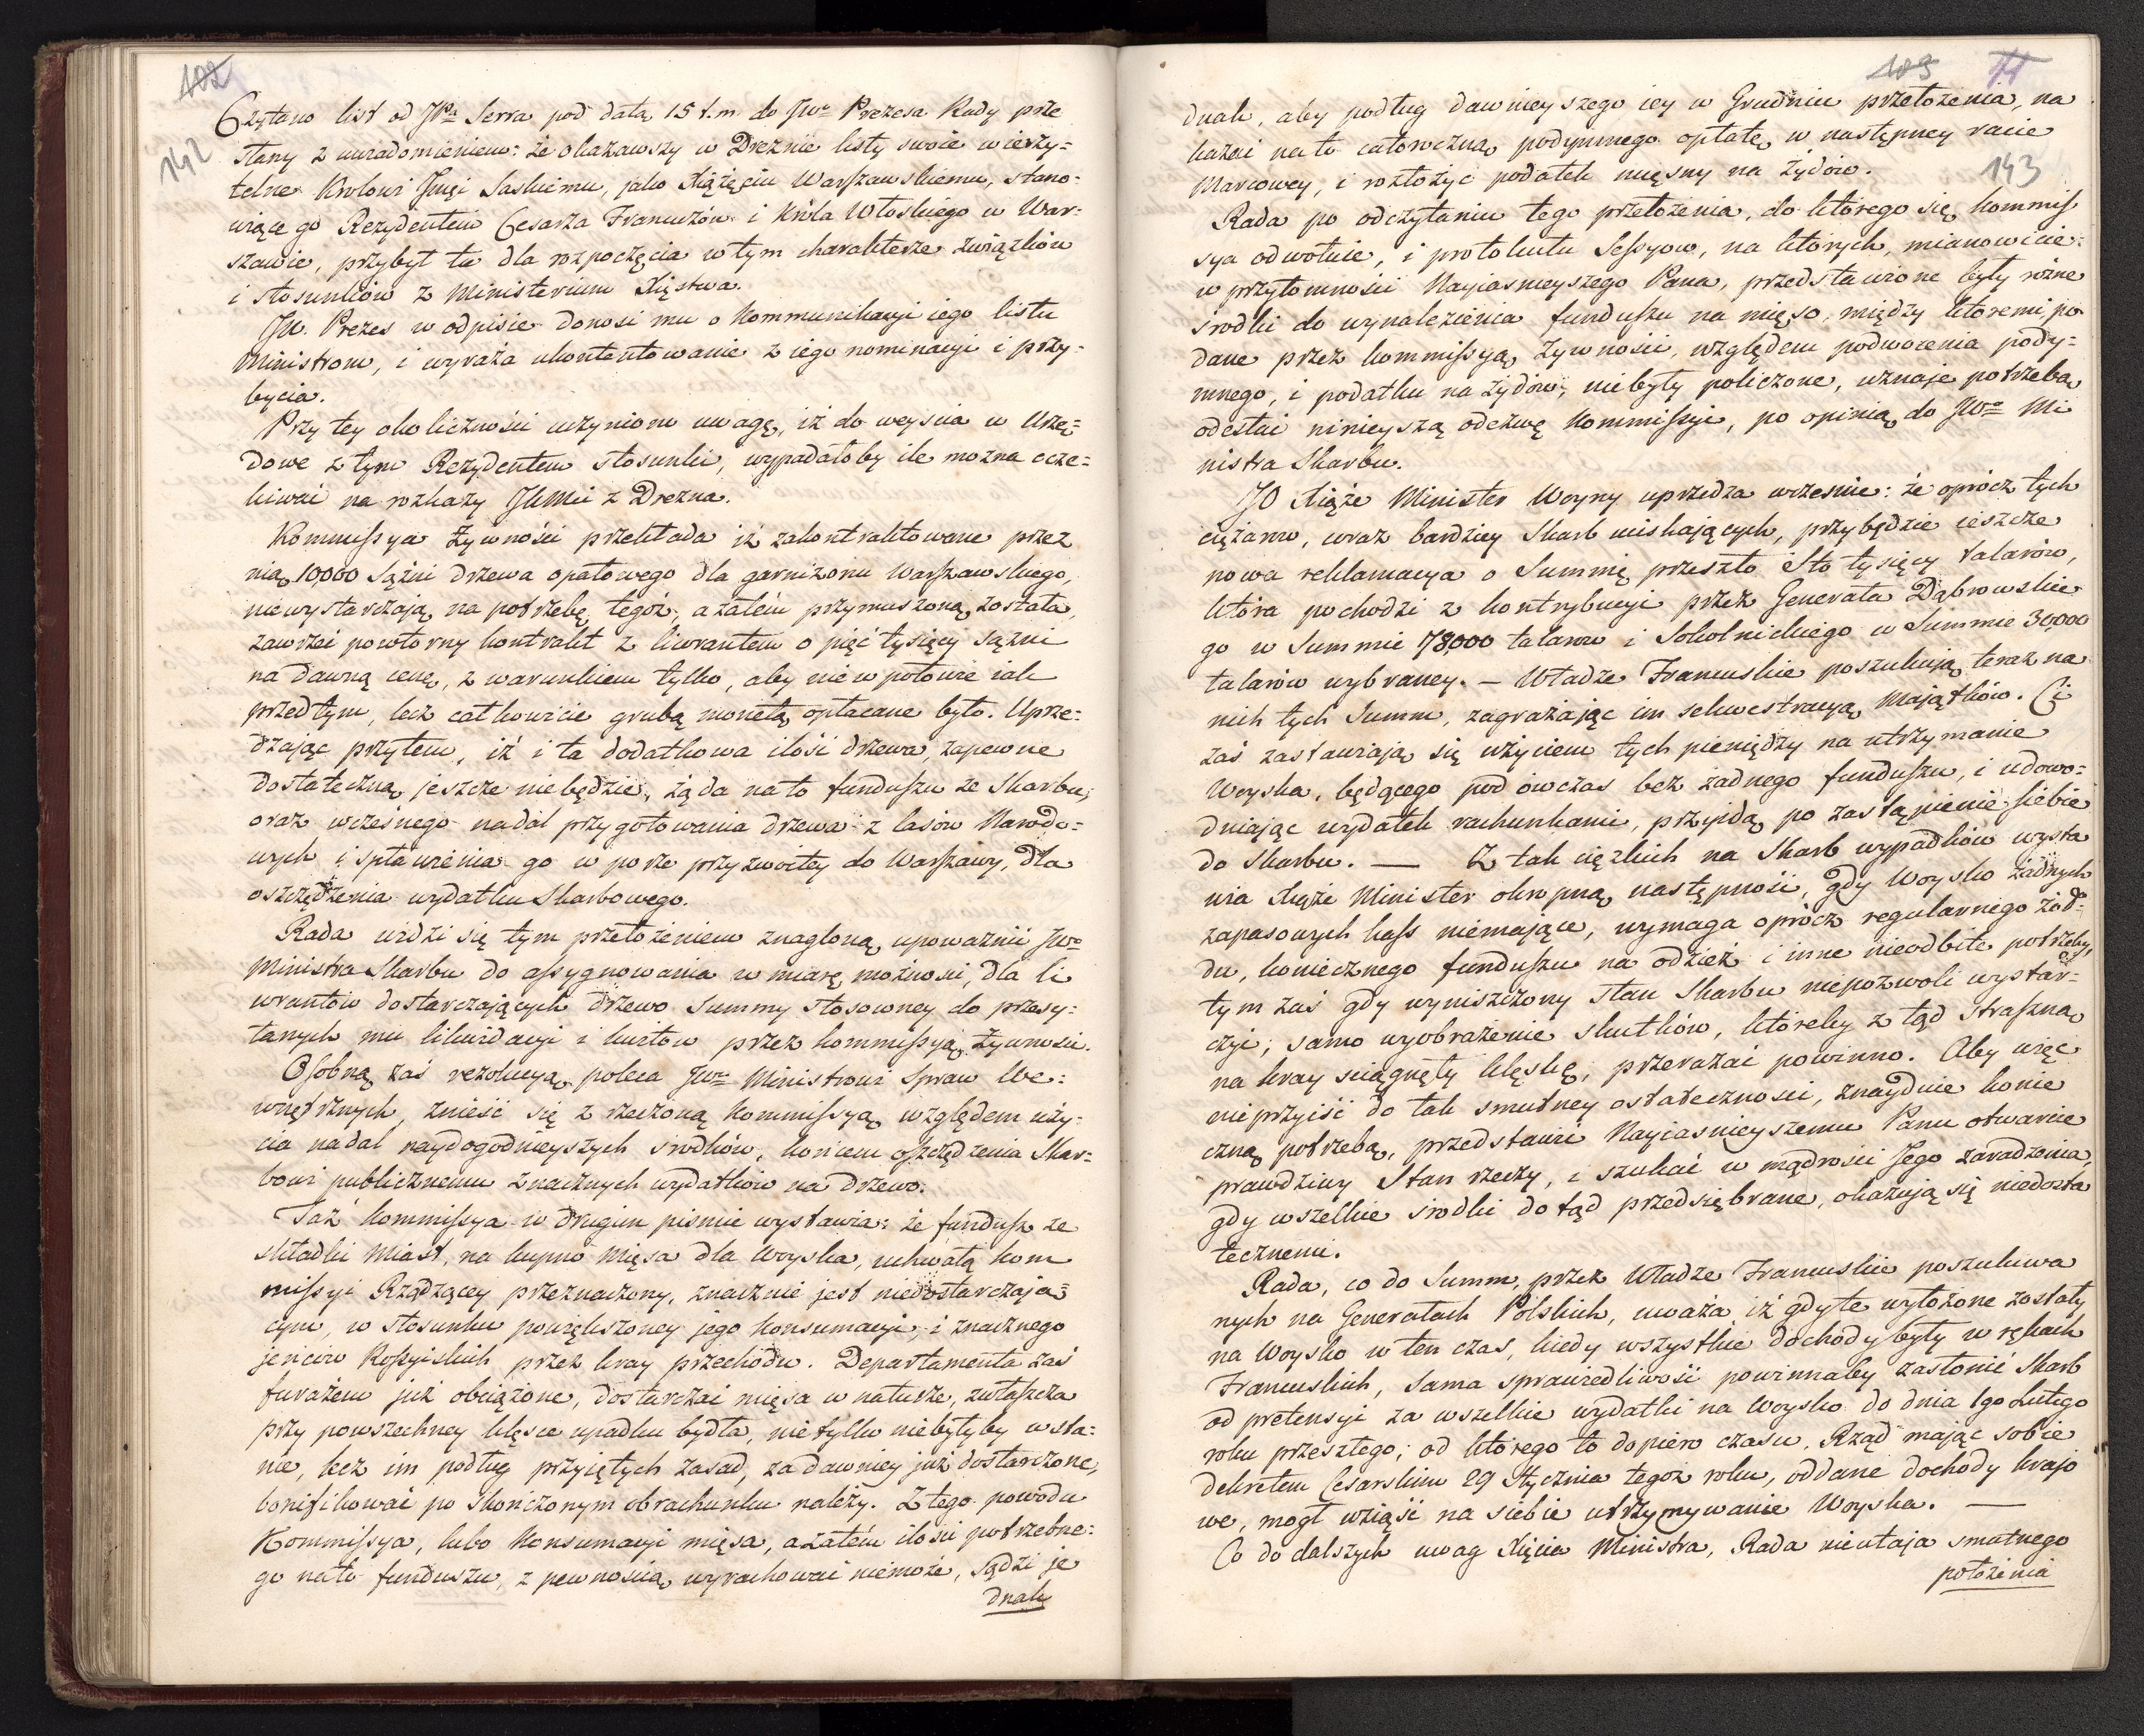 102
142
Czytano list od JPa Serra pod datą 15 t.m. do JWo Prezesa Rady prze
słany z uwiadomieniem: że okazawszy w Dreznie listy swoie wierzy=
telne Krolowi Jmci Saskiemu, jako Xiążęciu Warszawskiemu, stano=
wiące go Rezydentem Cesarza Francuzów i Króla Włoskiego w War=
szawie, przybył tu dla rozpoczęcia w tym charakterze związków
i stosunków z Ministerium Xięstwa.
JW. Prezes w odpisie donosi mu o Kommunikacyi iego listu
Ministrom, i wyraża ukontentowanie z iego nominacyi i przy=
bycia.
Przy tey okoliczności uczyniono uwagę, iż do weyscia w Urzę=
dowe z tym Rezydentem stosunki, wypadałoby ile można ocze=
kiwać na rozkazy JKMci z Drezna.
Kommissya Żywności przekłada iż zakontraktowane przez
nią 10,000 Sążni drzewa opałowego dla garnizonu Warszawskiego,
niewystarczają na potrzebę tegoż, a zatém przymuszoną została,
zawrzeć powtorny kontrakt z liwrantem o pięć tysięcy sążni
na dawną cenę, z warunkiem tylko, aby nie w połowie iak
przedtym, lecz całkowicie grubą monetą opłacane było. Uprze=
dzając przytem, iż i ta dodatkowa ilość drzewa, zapewne
dostateczną jeszcze niebędzie, żąda na to funduszu ze Skarbu,
oraz wczesnego nadal przygotowania drzewa z lasów Narodo=
wych i spławienia go w porze przyzwoitey do Warszawy, dla
oszczędzenia wydatku Skarbowego.
Rada widzi się tym przełożeniem znagloną, upoważnić JWo
Ministra Skarbu do assygnowania w miarę możności, dla li
wrantów dostarczających drzewo Summy stosowney do przesy=
łanych mu likwidacyi i kwitow przez kommissyą Żywnosci.
Osobną zaś rezolucyą poleca JWmu Ministrowi Spraw We=
wnętrznych, znieść się z rzeczoną Kommissyą względem uży=
cia nadal naydogodnieyszych srodków, końcem oszczędzenia Skar=
bowi publicznemu znacznych wydatków na drzewo.
Taż Kommissya w drugim pismie wystawia: że fundusz ze
składki Miast, na kupno Mięsa dla Woyska, uchwałą Kom
missyi Rządzącey przeznaczony, znacznie jest niedostarczają=
cym, w stosunku powiększoney jego Konsumacyi, i znacznego
jenców Rossyiskich przez kray przechodu. Departamenta zaś
furażem już obciążone, dostarczać mięsa w naturze, zwłaszcza
przy powszechney klęsce upadku bydła, nietylko niebyłyby w sta=
nie, lecz im podług przyiętych zasad, za dawniey już dostarczone,
bonifikować po skończonym obrachunku należy. Z tego powodu
Kommissya, lubo Konsumacyi mięsa, a zatém ilości potrzebne=
go nato funduszu, z pewnością wyrachować niemoże, sądzi je
dnak
103 71
143
dnak, aby podług dawnieyszego iey w Grudniu przełożenia, na
kazać na to całoroczną podymnego opłatę w następney racie
Marcowey, i rozłożyć podatek mięsny na żydów.
Rada po odczytaniu tego przełożenia, do którego się kommis
sya odwołuie, i protokułu Sessyow, na których, mianowicie
w przytomności Nayiasnieyszego Pana, przedstawione były rożne
srodki do wynalezienia funduszu na mięso, między któremi, po
dane przez kommissyą Żywności, względem podwoienia pody=
mnego, i podatku na Żydów, niebyły policzone, uznaje potrzebą
odesłać ninieyszą odezwę Kommissyi, po opinią do JWo Mi
nistra Skarbu.
JO Xiąże Minister Woyny uprzedza wczesnie: że oprócz tych
ciężarow, coraz bardziey Skarb uciskających, przybędzie ieszcze
nowa reklamacya o Summę przeszło Sto tysięcy talarów,
która pochodzi z kontrybucyi przez Generała Dąbrowskie
go w Summie 78,000 talarow i Sokolnickiego w Summie 30,000
talarów wybraney. — Władze Francuskie poszukują teraz na
nich tych Summ, zagrażając im sekwestracyą Majątków. Ci
zaś zastawiają się użyciem tych pieniędzy na utrzymanie
Woyska, będącego pod ówczas bez żadnego funduszu, i udowo=
dniając wydatek rachunkami, przyidą po zastąpienie siebie
do Skarbu. — Z tak ciężkich na Skarb wypadków wysta
wia Xiąże Minister okropną następność, gdy Woysko żadnych
zapasowych kass niemające, wymaga oprócz regularnego żoł=
du, koniecznego funduszu na odzież i inne nieodbite potrzeby,
tym zaś gdy wyniszczony stan Skarbu niepozwoli wystar=
czyć; samo wyobrażenie skutków, któreby z tąd straszną
na kray sciągnęły klęskę, przerażać powinno. Aby więc
nieprzyiść do tak smutney ostateczności, znayduie konie
czną potrzebą, przedstawić Nayiasnieyszemu Panu otwarcie
prawdziwy Stan rzeczy, i szukać w mądrości Jego zaradzenia,
gdy wszelkie srodki do tąd przedsiębrane, okazują się niedosta
tecznemi.
Rada, co do Summ, przez Władze Francuskie poszukiwa
nych na Generałach Polskich, uważa iż gdy te wyłożone zostały
na Woysko w ten czas, kiedy wszystkie dochody były w rękach
Francuskich, sama sprawiedliwość powinnaby zasłonić Skarb
od pretensyi za wszelkie wydatki na Woysko do dnia 1go Lutego
roku przeszłego; od którego to dopiero czasu, Rząd mając sobie
dekretem Cesarskim 29 Stycznia tegoż roku, oddane dochody krajo
we, mogł wziąść na siebie utrzymywanie Woyska. —
Co do dalszych uwag Xięcia Ministra, Rada nieutaja smutnego
położenia